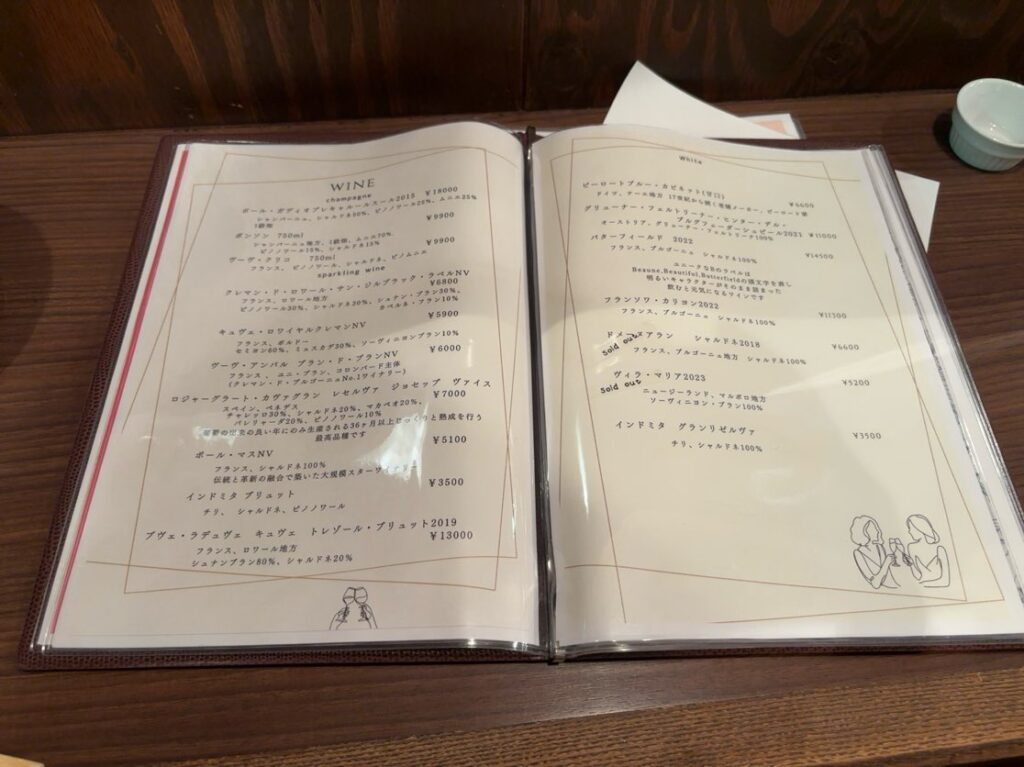 WINE
champagne
ポール・ガディオプレキャルールスールス2015 ¥18000
シャンパーニュ、シャルドネ50%、ピノノワール25%、ムニエ25%
1級畑
¥9900
ポンソン 750ml
シャンパーニュ地方、1級畑、ムニエ70%、
ピノノワール15%、シャルドネ15%
¥9900
ヴーヴ・クリコ 750ml
フランス、ピノノワール、シャルドネ、ピノムニエ
sparkling wine
クレマン・ド・ロワール・サン・ジルブラック・ラベルNV
¥6800
フランス、ロワール地方
シュナン・ブラン30%、
ピノノワール30%、シャルドネ30%、カベルネ・フラン10%
¥5900
キュヴェ・ロワイヤルクレマンNV
フランス、ボルドー
セミヨン60%、ミュスカデ30%、ソーヴィニヨンブラン10%
¥6000
ヴーヴ・アンバル ブラン・ド・ブランNV
フランス、ユニ・ブラン、コロンバード主体
(クレマン・ド・ブルゴーニュNo.1ワイナリー)
ロジャーグラート・カヴァグラン レセルヴァ ジョセップ ヴァイス
¥7000
スペイン、ペネデス
チャレッロ30%、シャルドネ20%、マカベオ20%、
パレリャーダ20%、ピノノワール10%
葡萄の出来の良い年にのみ生産される36ヶ月以上じっくりと熟成を行う
最高品種です
¥5100
ポール・マスNV
フランス、シャルドネ100%
伝統と革新の融合で築いた大規模スターワイナリー
¥3500
インドミタ ブリュット
チリ、 シャルドネ、ピノノワール
ブヴェ・ラデュヴェ キュヴェ トレゾール・ブリュット2019
¥13000
フランス、ロワール地方
シュナンブラン80%、シャルドネ20%
White
ピーロートブルー・カビネット(甘口)
ドイツ、ナーエ地方 17世紀から続く老舗メーカー、ピーロート家
¥6600
グリューナー・フェルトリーナー・ヒンター・デル・
ブルグフェーダーシュピール2021 ¥11000
オーストリア、グリューナー・フェルトリーナ100%
バターフィールド 2022
フランス、ブルゴーニュ シャルドネ100%
¥14500
ユニークなBのラベルは
Beaune,Beautiful,Butterfieldの頭文字を表し
明るいキャラクターがそのまま詰まった
飲むと元気になるワインです
フランソワ・カリヨン2022
フランス、ブルゴーニュ シャルドネ100%
¥11300
ドメーヌアラン シャルドネ2018
sold out
¥6600
フランス、ブルゴーニュ地方 シャルドネ100%
ヴィラ・マリア2023
sold out
¥5200
ニュージーランド、マルボロ地方
ソーヴィニヨン・ブラン100%
インドミタ グランリゼルヴァ
¥3500
チリ、シャルドネ100%